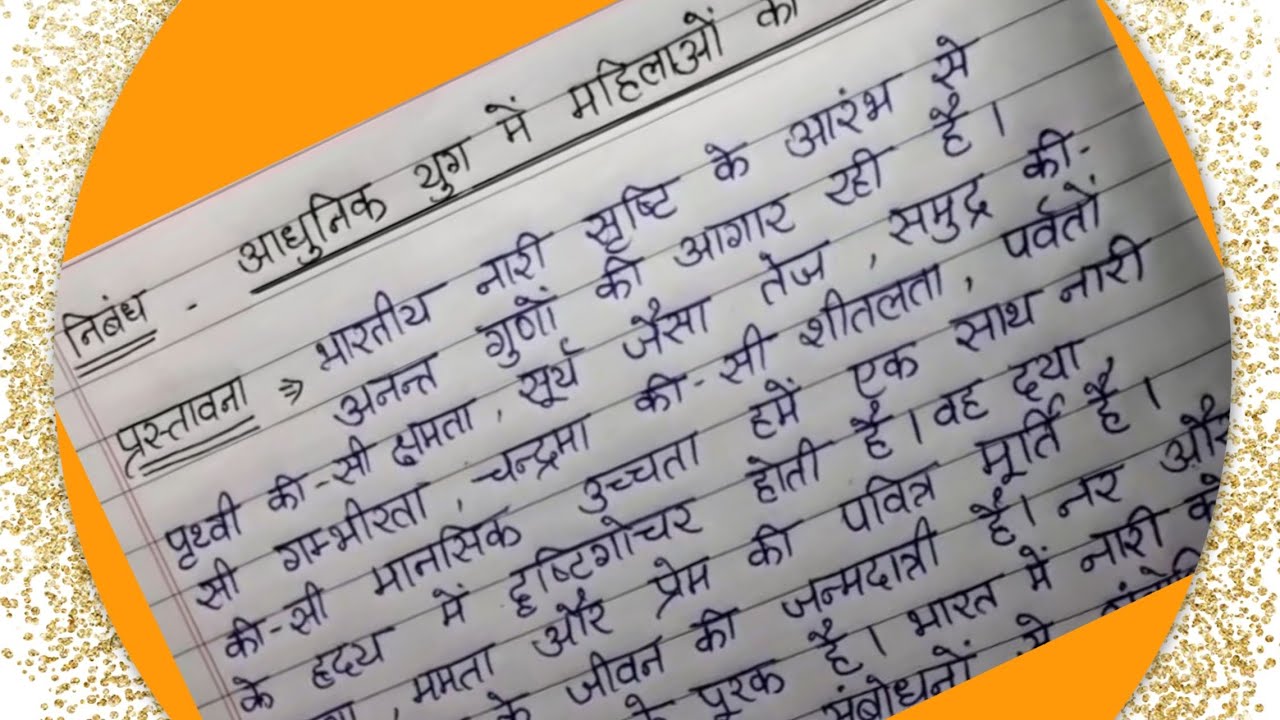 निबंध - आधुनिक युग में महिलाओं की
प्रस्तावना ⇒ भारतीय नारी सृष्टि के आरंभ से
अनन्त गुणों की आगार रही है।
पृथ्वी की-सी क्षमता, सूर्य जैसा तेज, समुद्र की-
सी गम्भीरता, चन्द्रमा की-सी शीतलता, पर्वतों
की-सी मानसिक उच्चता हमें एक साथ नारी
के हृदय में दृष्टिगोचर होती है। वह दया,
, ममता और प्रेम की पवित्र मूर्ति है।
के जीवन की जन्मदात्री है। नर और
पूरक है। भारत में नारी
संबोधनों